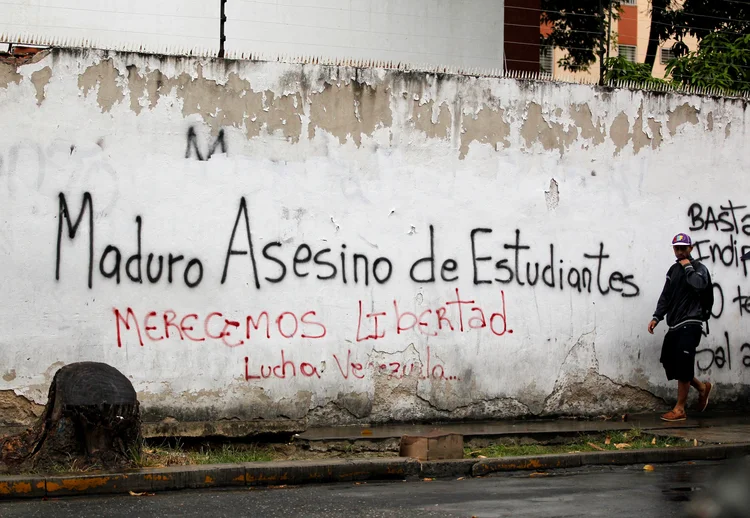 M
Maduro Asesino de Estudiantes
MERECEMOS Libertad.
Lucha Venezuela...
BASTA